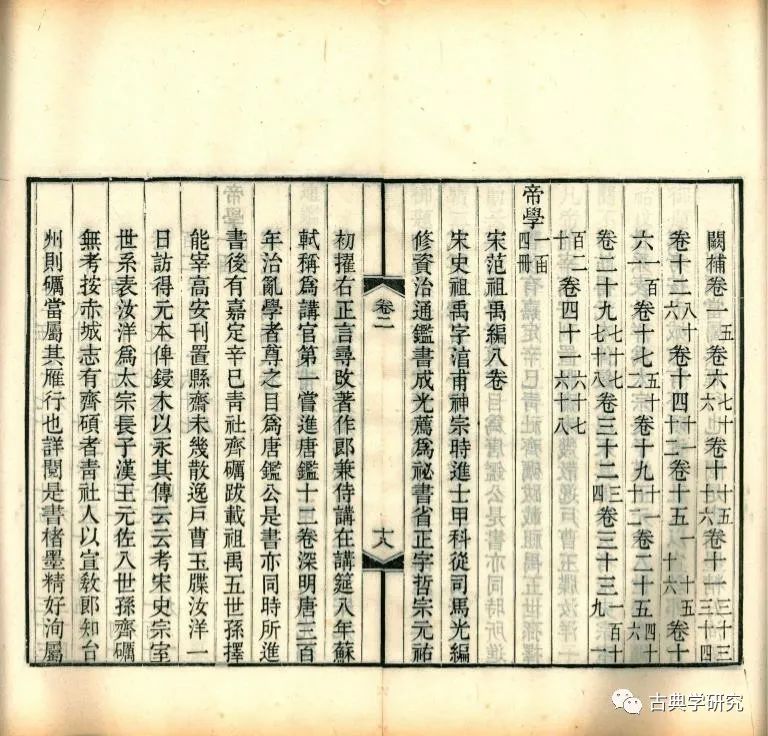 闕補卷一五卷六七十六卷十十五十六卷十一三十三三十四
卷十二八十六卷十四十一十二卷十五一十五十六卷十
六一百六卷十七五十卷十九十一十二卷二十五四十六
卷二十九七十七七十八卷三十二三四卷三十三九一百十一
百二十卷四十一六十七六十八
帝學一函四冊
宋范祖禹編八卷
宋史祖禹字淳甫神宗時進士甲科從司馬光編
修資治通鑑書成光薦爲祕書省正字哲宗元祐
卷二
十八
初擢右正言尋改著作郎兼侍講在講筵八年蘇
軾稱爲講官第一嘗進唐鑑十二卷深明唐三百
年治亂學者尊之目爲唐鑑公是書亦同時所進
書後有嘉定辛巳靑社齊礪跋載祖禹五世孫擇
能宰高安刊置縣齋未幾散逸戸曹玉牒汝洋一
日訪得元本俾鋟木以永其傳云云考宋史宗室
世系表汝洋爲太宗長子漢王元佐八世孫齊礪
無考按赤城志有齊碩者靑社人以宣敎郎知台
州則礪當屬其雁行也詳閱是書楮墨精好洵屬
古典学研究